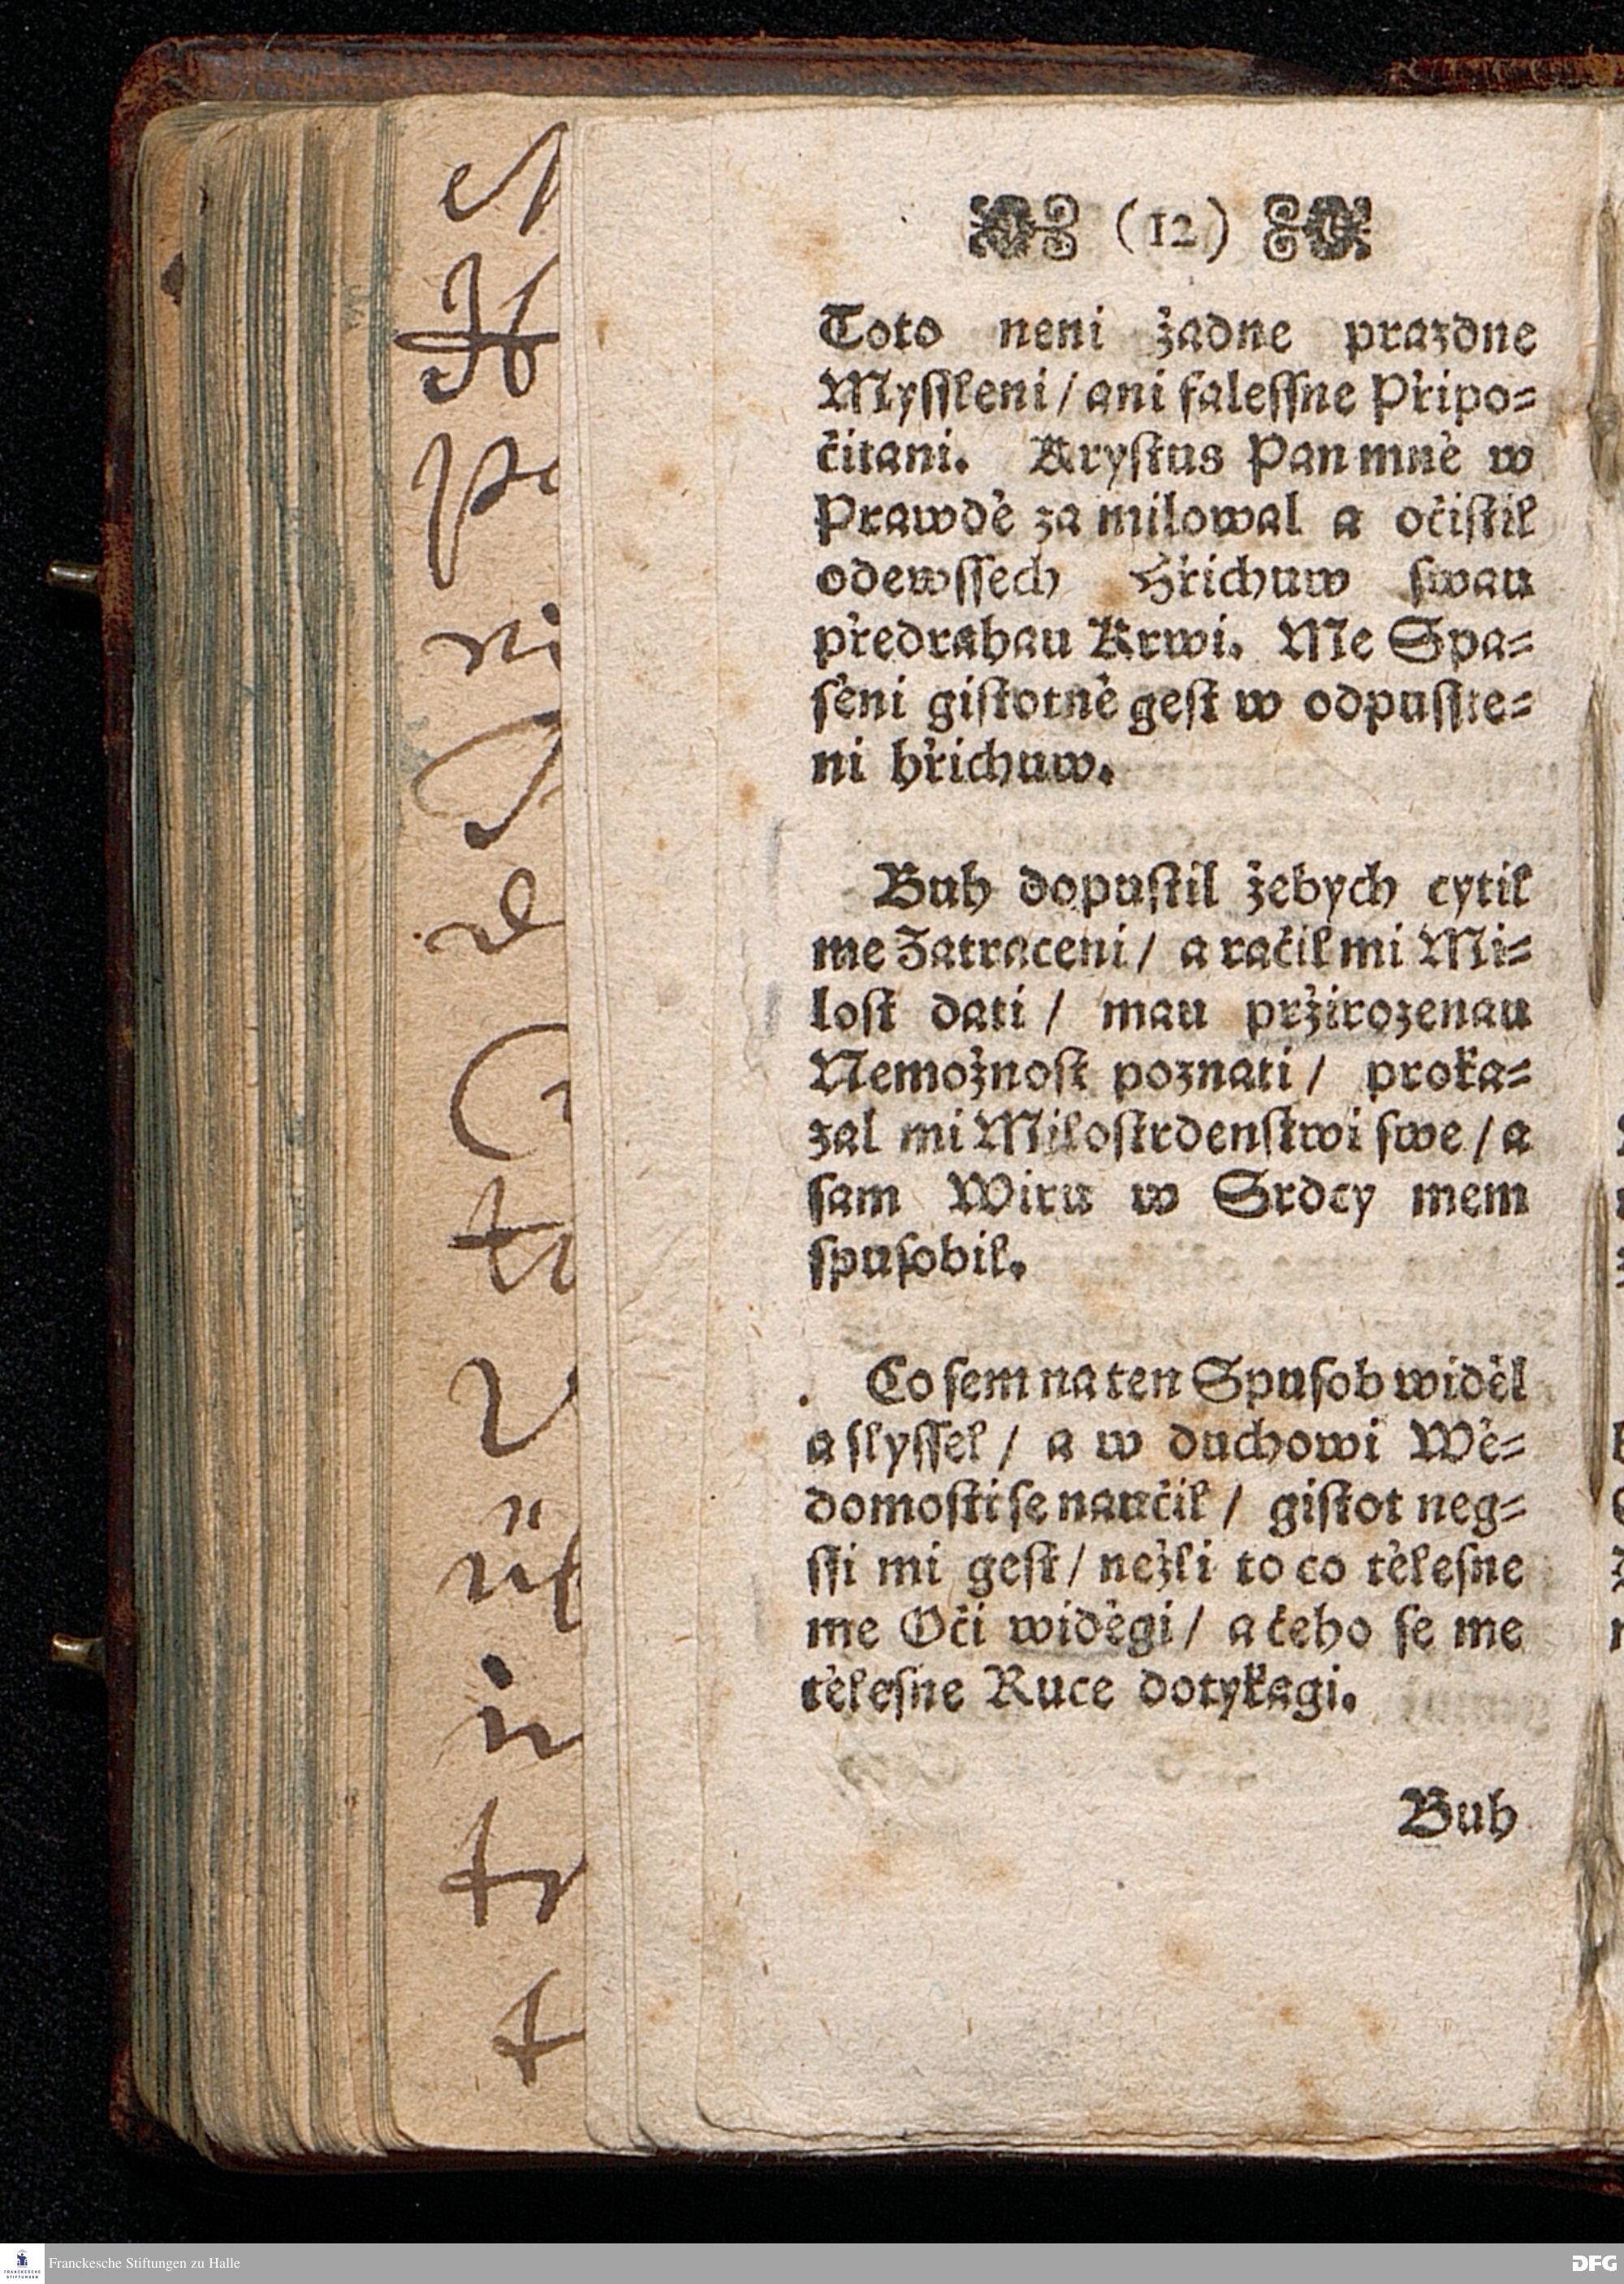 (12)
Toto neni žadne prazdne
Myſſleni / ani faleſſne Připo⸗
čitani. Kryſtus Pan mně w
Prawdě za milowal a očiſtil
odewſſech Hřichuw ſwau
předrahau Krwi. Me Spa⸗
ſěni giſtotně geſt w odpuſſte⸗
ni hřichuw.
Buh dopuſtil žebych cytil
me Zatraceni / a račil mi Mi⸗
loſt dati / mau pržirozenau
Nemožnoſt poznati / proka⸗
zal mi Miloſtrdenſtwi ſwe / a
ſam Wiru w Srdcy mem
ſpuſobil.
Co ſem na ten Spuſob widěl
a ſlyſſel / a w duchowi Wě⸗
domoſti ſe naučil / giſtot neg⸗
ſſi mi geſt / nežli to co těleſne
me Oči widěgi / a čeho ſe me
těleſne Ruce dotykagi.
Buh
Franckesche Stiftungen zu Halle
DFG